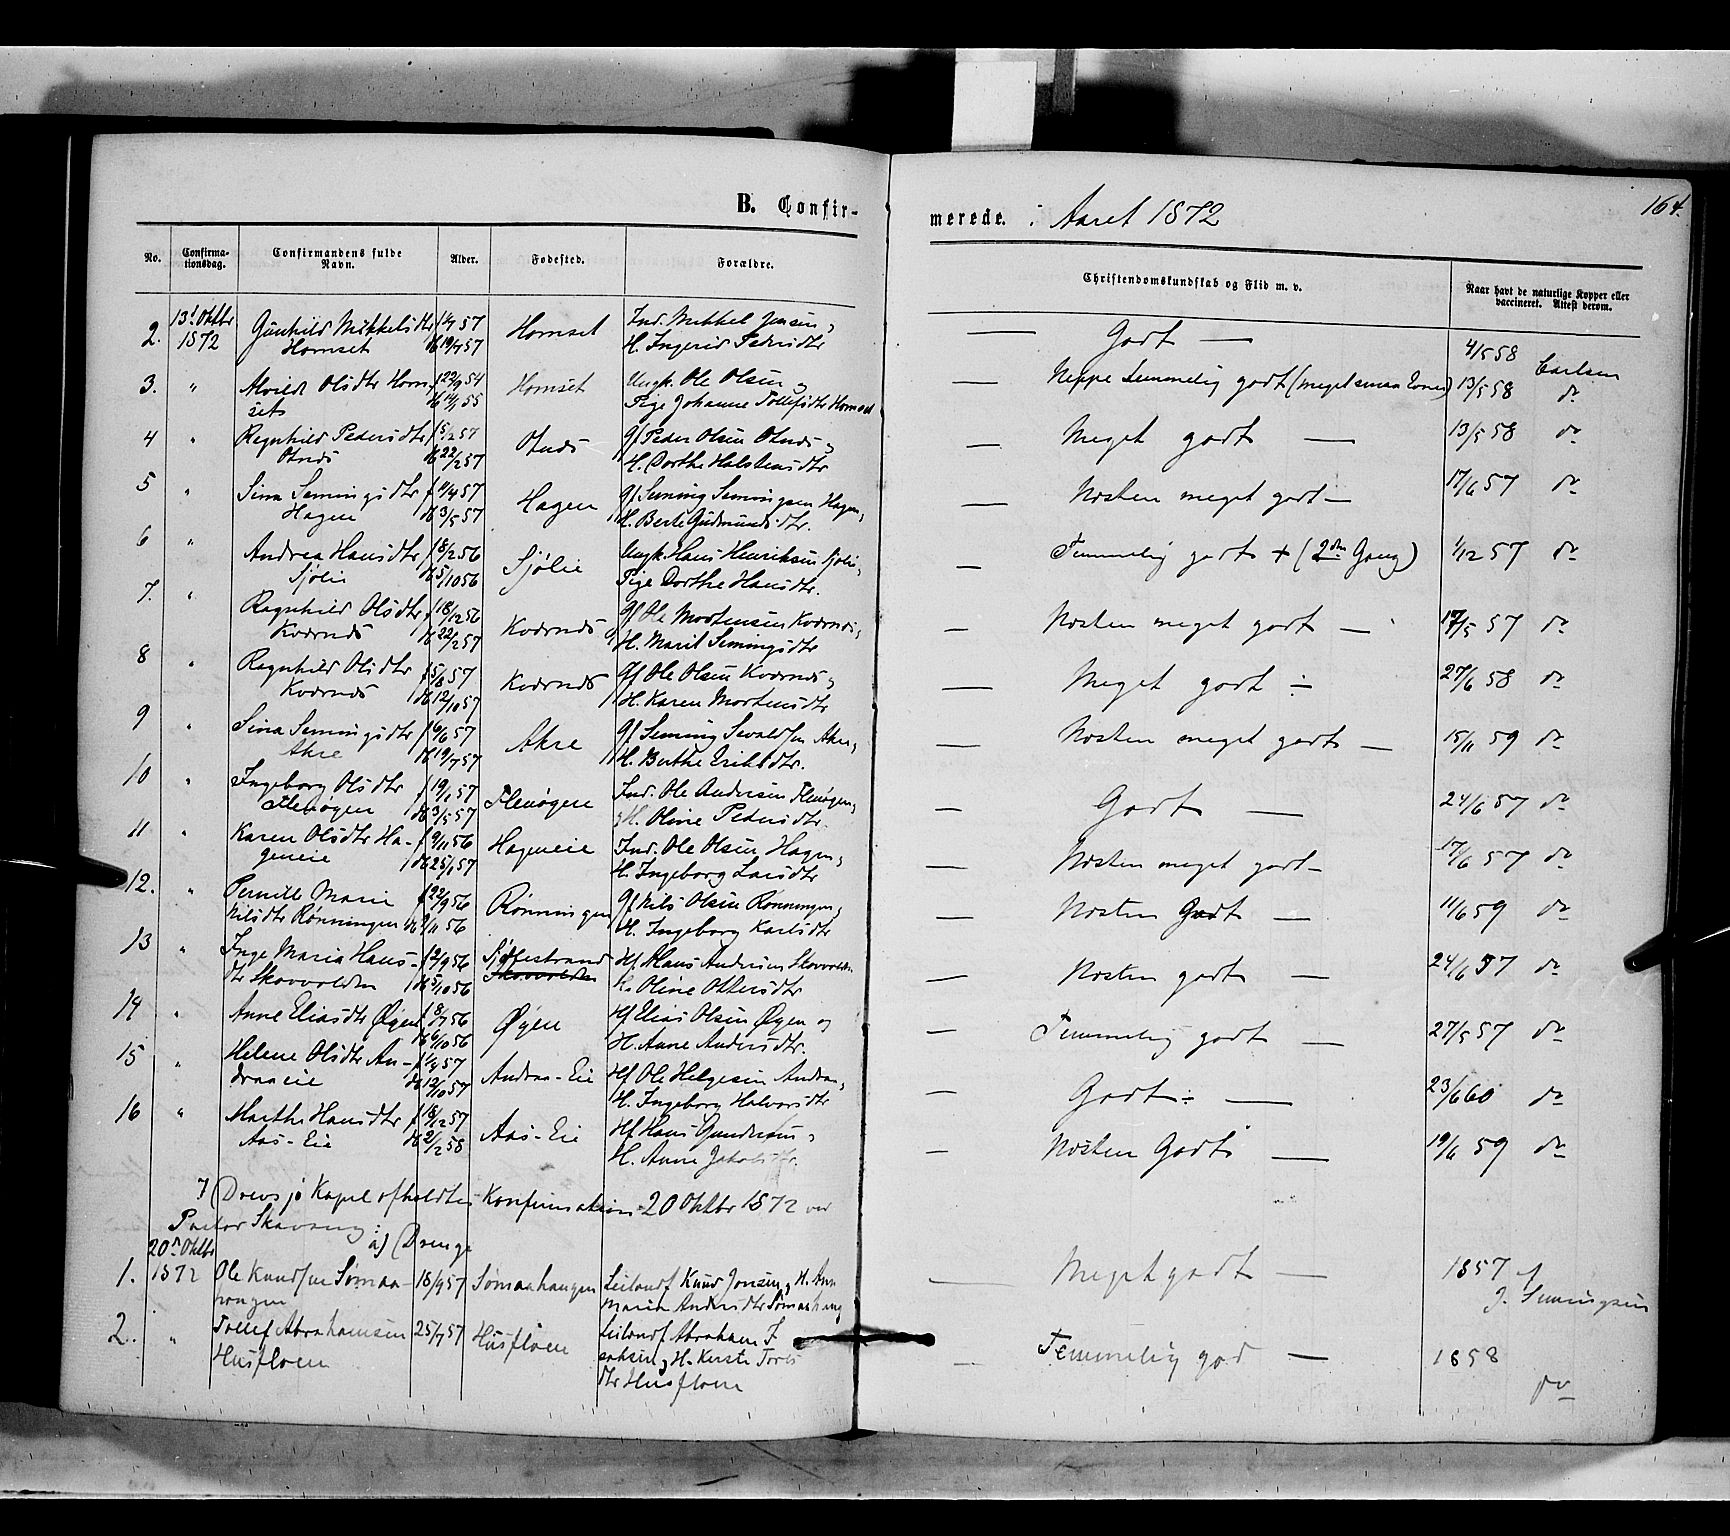 B. Confir-
merede. i Aaret 1872
164.
No. Confirma-tionsdag. Confirmandens fulde Navn. Alder. Fødested. Forældre. Christendomskundskab og Flid m. v. Naar havt de naturlige Kopper eller vaccineret. Attest derom.
2. 13d Oktbr 1872 Gunhild Mikkelsdtr Homset f 1/4 57 d 19/7 57 Homset Ind. Mikkel Jensen og H. Ingerid Pedersdtr — Godt — 4/5 58 Carlsen
3. " Alvilde Olsdtr Homset f 22/9 54 d 14/1 55 Homset Ungk. Ole Olsen og Pige Johanne Tollefsdtr Homset — Neppe temmelig godt (meget smaa Evner) 13/5 58 do
4 " Ragnhild Pedersdtr Otnes f 5/1 57 d 22/2 57 Otnes Gf Peder Olsen Otnes og H. Dorthe Halstensdtr — Meget godt — 13/5 58 do
5 " Sina Semingsdtr Hagen f 11/4 57 d 3/5 57 Hagen Gf Seming Semingsen Hagen, H. Berte Gudmundsdtr. — Næsten meget godt — 17/6 57 do
6 " Andrea Hansdtr Sjølie f 18/2 56 d 5/10 56 Sjølie Ungk. Hans Henriksen Sjølie, Pige Dorthe Hansdtr. — Temmelig godt + (2den Gang) 1/12 57 do
7. " Ragnhild Olsdtr Kværnes f 18/12 56 d 22/2 57 Kværnes Gf Ole Mortensen Kværnes, H. Marit Semingsdtr — Næsten meget godt — 17/5 57 do
8 " Ragnhild Olsdtr Kværnes f 5/8 57 d 12/10 57 Kværnes Gf Ole Olsen Kværnes og H. Karen Mortensdtr — Meget godt ÷ 27/6 58 do
9 " Sina Semingsdtr Akre f 6/6 57 d 19/7 57 Akre Gf Seming Sevaldsen Akre, H. Berthe Eriksdtr. — Næsten meget godt — 15/11 59 do
10 " Ingeborg Olsdtr Flenøgen f 19/1 57 d 3/5 57 Flenøgen Ind. Ole Andersen Flenøgen, H. Oline Pedersdtr — Godt — 24/6 57 do
11 " Karen Olsdtr Hageneie f 9/11 56 d 25/1 57 Hageneie Ind. Ole Olsen Hagen, H. Ingeborg Larsdtr — Næsten meget godt — 17/6 57 do
12. " Pernille Marie Nilsdtr Rønningen f 22/9 56 d 9/11 56 Rønningen Gf Nils Olsen Rønningen, H. Ingeborg Karlsdtr — Næsten Godt — 11/6 59 do
13 " Inge Maria Hansdtr Skovvolden f 12/9 56 d 5/10 56 Sjøllestrand Skovvolden Hf Hans Andersen Skovvolden H. Oline Ottersdtr — Næsten godt — 24/6 57 do
14 " Anne Eliasdtr Øgen f 8/7 56 d 6/10 56 Øgen Hf Elias Olsen Øgen og H. Anne Andersdtr. — Temmelig godt — 27/5 57 do
15 " Helene Olsdtr Andraaeie f 1/9 57 d 12/10 57 Andraa-Eie Hf Ole Helgesen Andraa, H. Ingeborg Halvorsdtr — Godt ÷ — 23/6 60 do
16 " Marthe Hansdtr Aas-Eie f 18/12 57 d 2/2 58 Aas-Eie Hf Hans Gundersen, H. Anne Jakobsdtr. — Næsten Godt — 19/6 59 do
I Drevsjø Kapel afholdtes Konfirmation 20 Oktbr 1872 ved
Pastor Skavang:
a) Drenge
1. 20de Oktbr 1872 Ole Knudsen Sømaahaugen 18/9 57 Sømaahaugen Leilændf Knud Jonsen, H. Ann Maria Andersdtr Sømaahaug — Meget godt — 1857 af J. Semingsen
2. " Tollef Abrahamsen Husfloen 25/7 57 Husfloen Leilændf Abraham Isaksen, H. Kersti Toresdtr Husfloen — Temmelig god — 1858 do